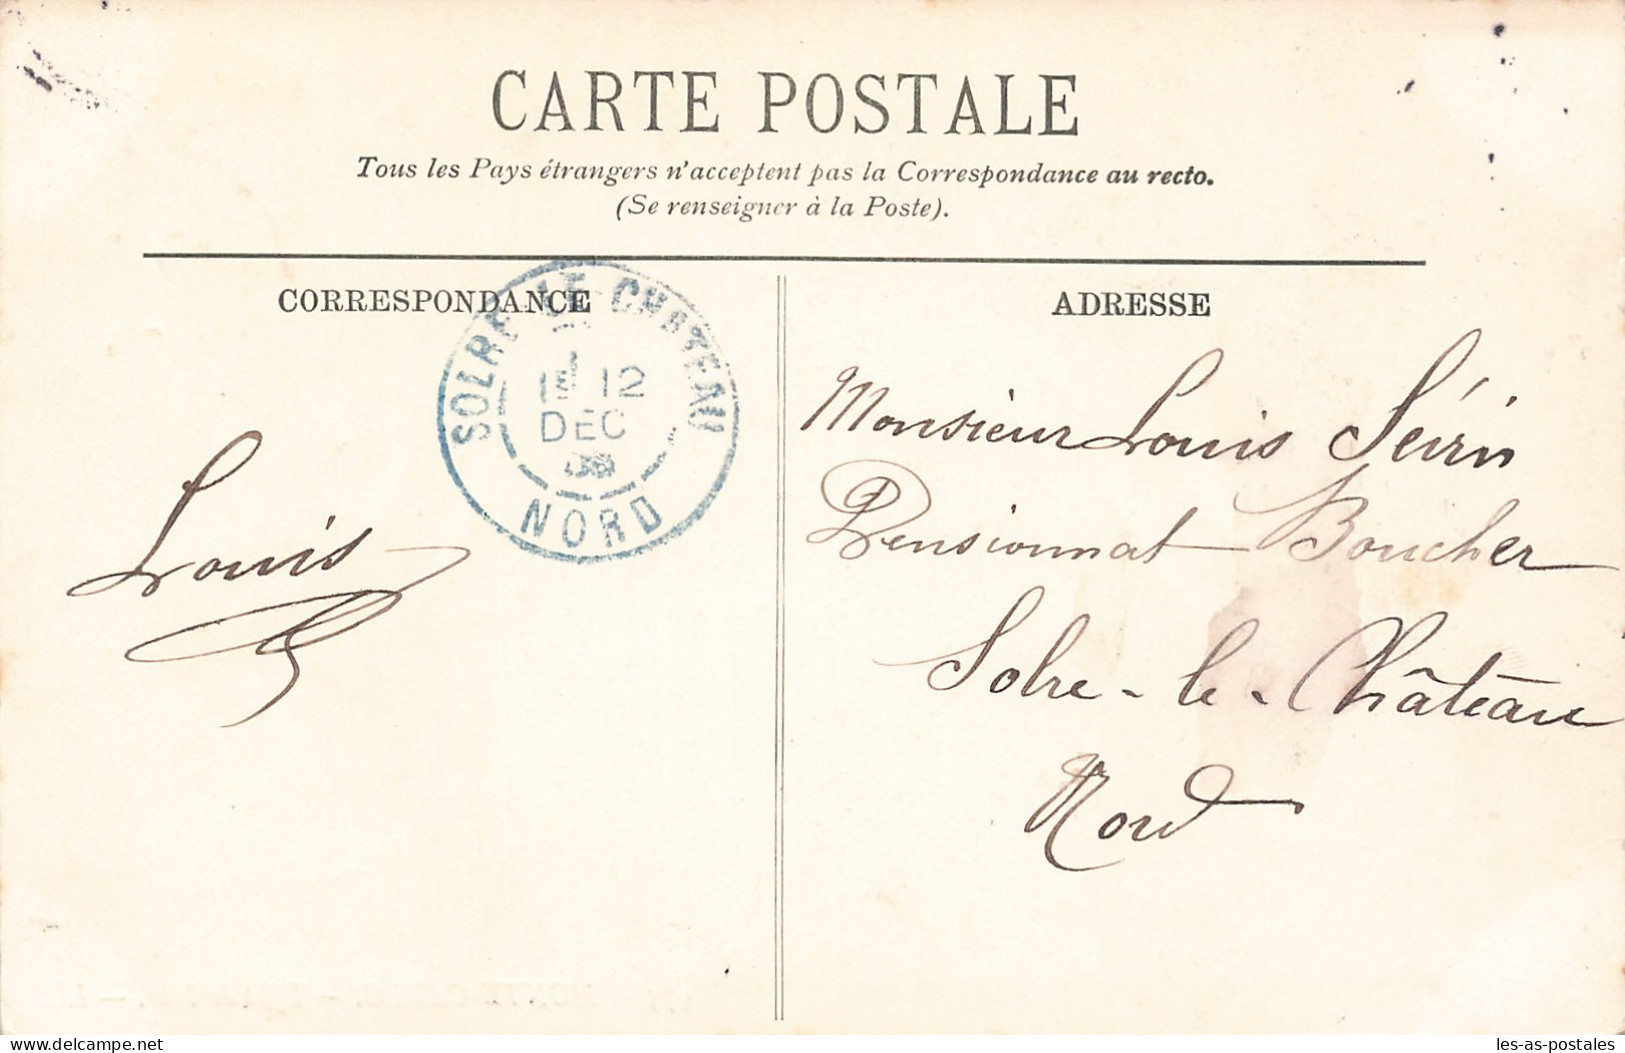 CARTE POSTALE
Tous les Pays étrangers n'acceptent pas la Correspondance au recto.
(Se renseigner à la Poste).
CORRESPONDANCE
ADRESSE
SOLRE-LE-CHATEAU
12
DEC
NORD
Louis
Monsieur Louis Sévrin
Pensionnat Boucher
Solre-le-Château
Nord
delcampe.net
les-as-postales